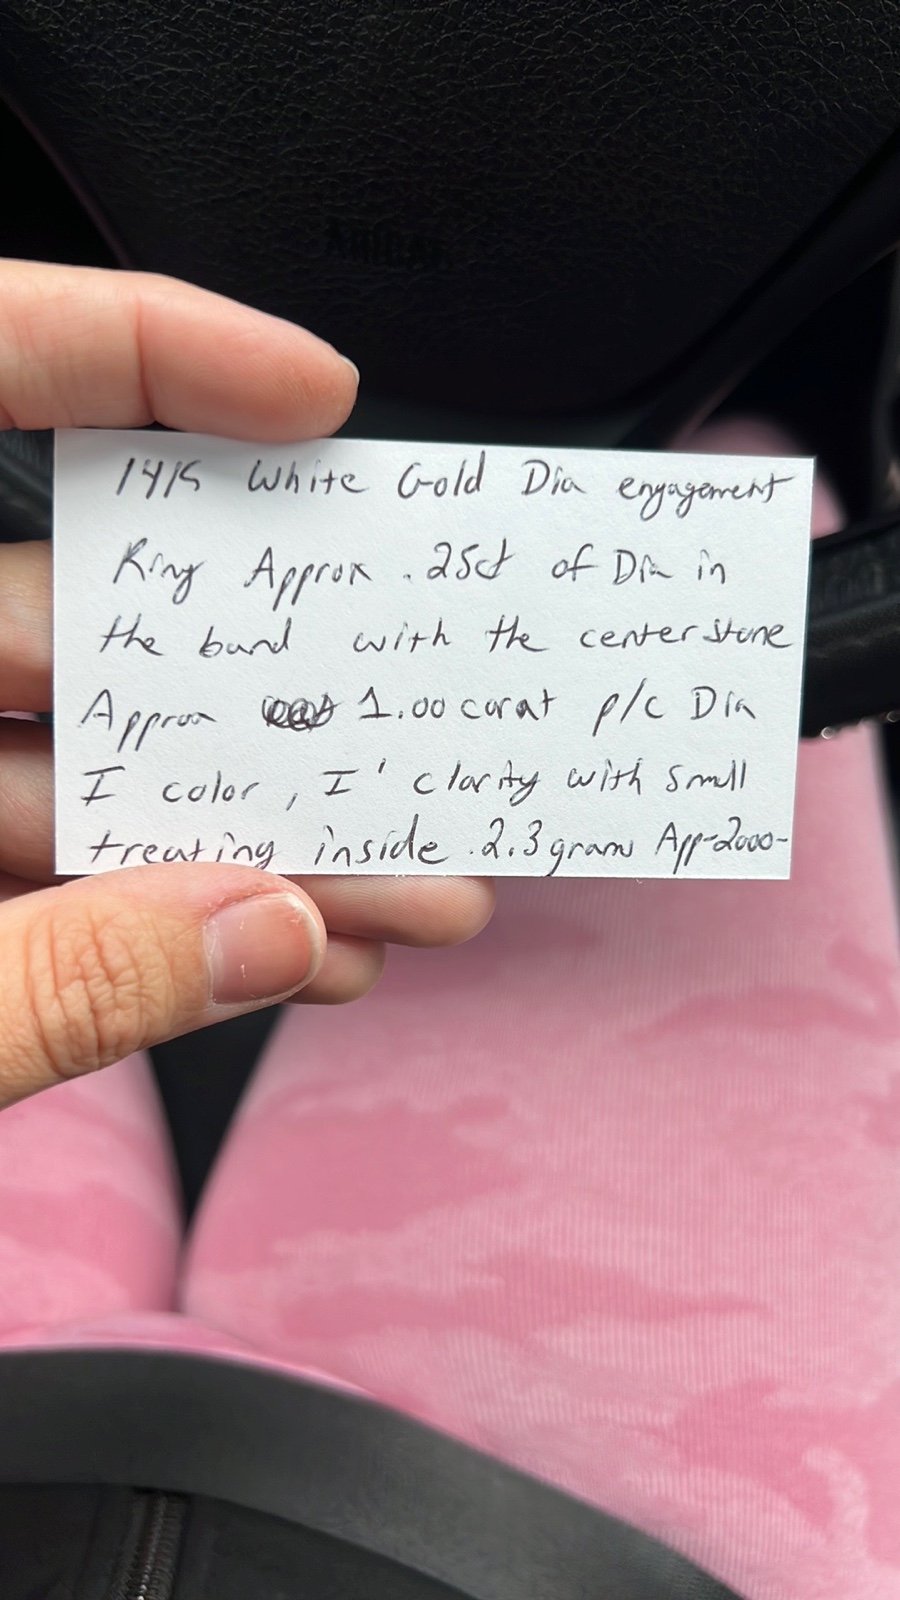 14K White Gold Dia engagement
Ring Approx .25ct of Dia in
the band with the center stone
Approx 1.00 carat p/c Dia
I color, I' clarity with small
treating inside .2.3 grams App-2000-
AIRBAG